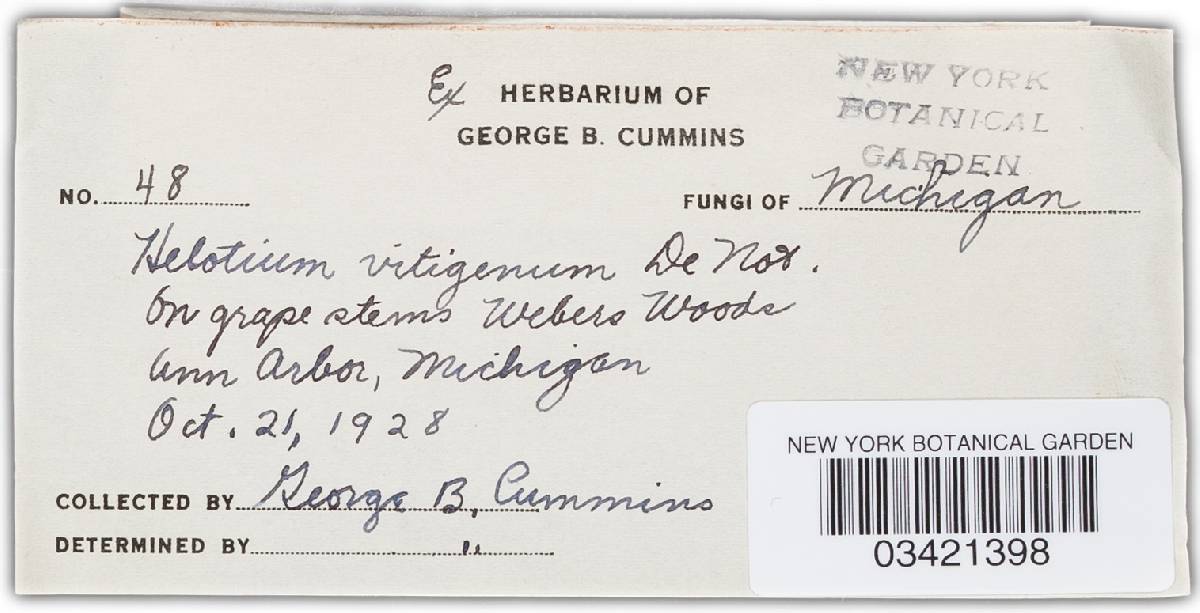 Ex HERBARIUM OF
GEORGE B. CUMMINS
NEW YORK
BOTANICAL
GARDEN
NO. 48
FUNGI OF Michigan
Helotium vitigenum De Not.
On grape stems Webers Woods
Ann Arbor, Michigan
Oct. 21, 1928
COLLECTED BY George B. Cummins
DETERMINED BY "
NEW YORK BOTANICAL GARDEN
03421398